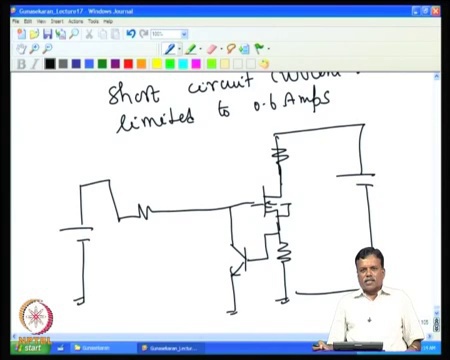 Gunasekaran_Lecture17 - Windows Journal
File Edit View Insert Actions Tools Help
100%
B I
Short circuit current
limited to 0.6 Amps
NPTEL
start
Gunasekaran
Gunasekaran_Lecture...